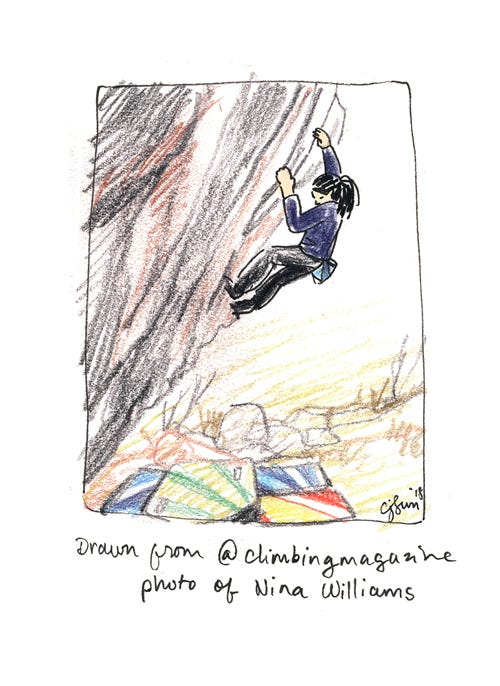 '18
Drawn from @climbingmagazine
photo of Nina Williams